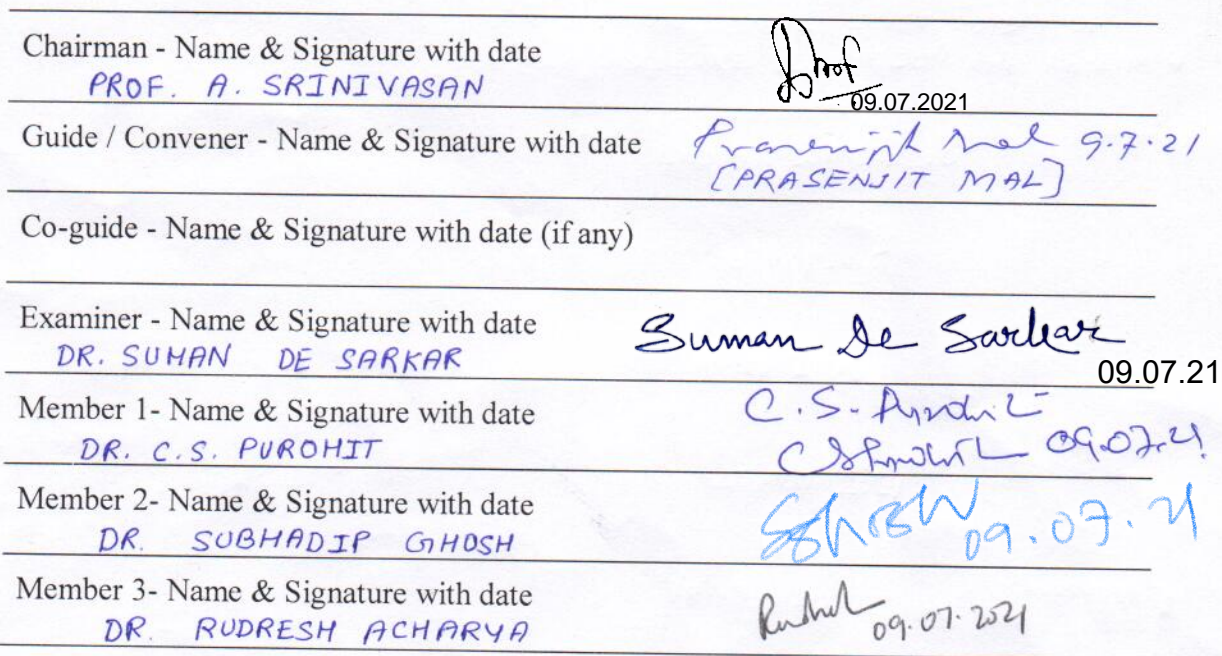 Chairman - Name & Signature with date
PROF. A. SRINIVASAN
09.07.2021
Guide / Convener - Name & Signature with date
Prasenjit Mal 9.7.21
[PRASENJIT MAL]
Co-guide - Name & Signature with date (if any)
Examiner - Name & Signature with date
DR. SUMAN DE SARKAR
Suman De Sarkar
09.07.21
Member 1- Name & Signature with date
DR. C.S. PUROHIT
C.S. Purohit
09.07.21
Member 2- Name & Signature with date
DR. SUBHADIP GHOSH
09.07.21
Member 3- Name & Signature with date
DR. RUDRESH ACHARYA
09.07.2021